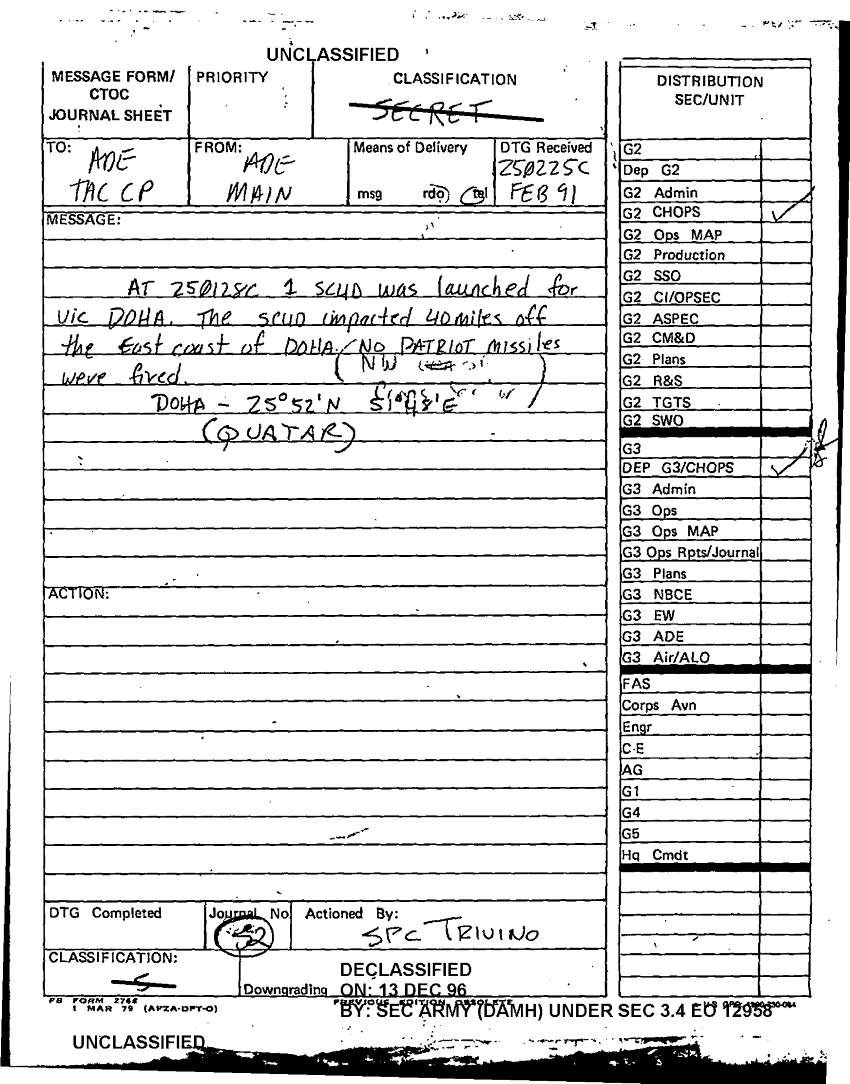 UNCLASSIFIED
MESSAGE FORM/
CTOC
JOURNAL SHEET
PRIORITY
CLASSIFICATION
SECRET
TO:
ADE
TAC CP
FROM:
ADE
MAIN
Means of Delivery
msg rdo tel
DTG Received
250225C
FEB 91
MESSAGE:
AT 250128C 1 SCUD was launched for
vic DOHA. The scud impacted 40 miles off
the East coast of DOHA. NO PATRIOT missiles
were fired.
NW
DOHA - 25°52'N 51°48'E
(QUATAR)
ACTION:
DTG Completed
Journal No
52
Actioned By:
SPC TRIVINO
CLASSIFICATION:
S
Downgrading
DECLASSIFIED
ON: 13 DEC 96
BY: SEC ARMY (DAMH) UNDER SEC 3.4 EO 12958
FB FORM 2766
1 MAR 79 (AFZA-DPT-O)
PREVIOUS EDITION OBSOLETE
UNCLASSIFIED
DISTRIBUTION
SEC/UNIT
G2
Dep G2
G2 Admin
G2 CHOPS
G2 Ops MAP
G2 Production
G2 SSO
G2 CI/OPSEC
G2 ASPEC
G2 CM&D
G2 Plans
G2 R&S
G2 TGTS
G2 SWO
G3
DEP G3/CHOPS
G3 Admin
G3 Ops
G3 Ops MAP
G3 Ops Rpts/Journal
G3 Plans
G3 NBCE
G3 EW
G3 ADE
G3 Air/ALO
FAS
Corps Avn
Engr
C-E
AG
G1
G4
G5
Hq Cmdt